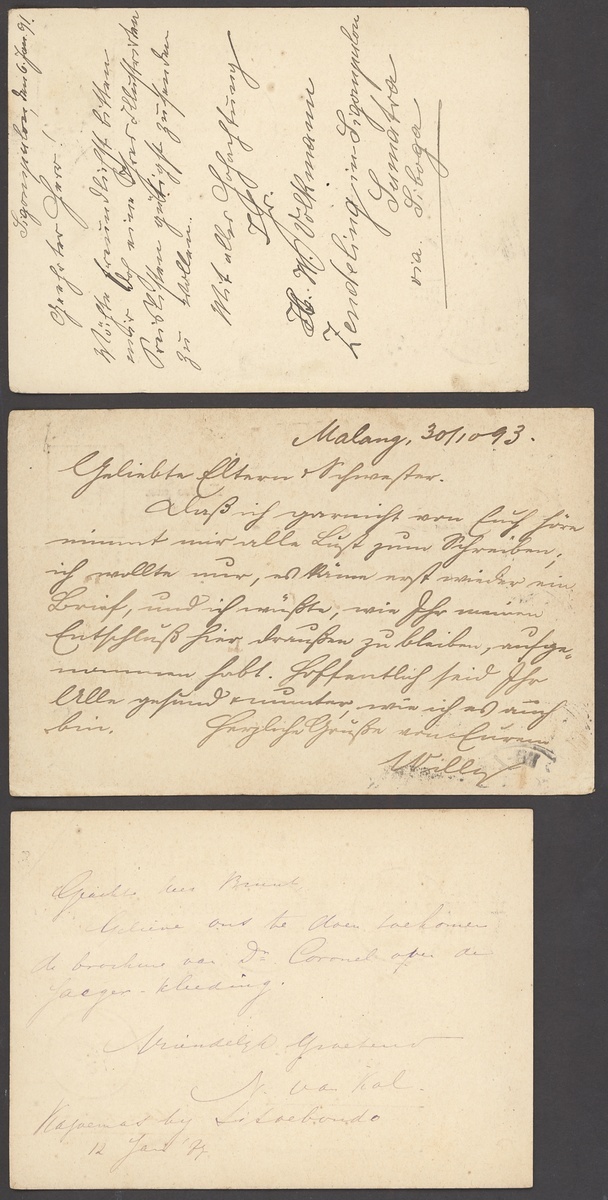 Sigompulon, den 6 Jan. 91.
Geehrter Herr!
Möchte freundlichst bitten
mir doch eine Ihrer Illustrirten
Preislisten gütigst zusenden
zu wollen.
Mit aller Hochachtung
Ihr
H. W. Volkmann
Zendeling in Sigompulon
Sumatra
via Siboga
Malang, 30/10 93.
Geliebte Eltern & Schwester.
Daß ich garnicht von Euch höre
nimmt mir alle Lust zum Schreiben;
ich wollte nur, es käme erst wieder ein
Brief, und ich wüßte, wie Ihr meinen
Entschluß hier draußen zu bleiben, aufge-
nommen habt. Hoffentlich seid Ihr
Alle gesund & munter, wie ich es auch
bin. Herzliche Grüße von Eurem
Willy
Geachte heer
Gelieve ons te doen toekomen
de brochure van Dr Coronel over de
Jaeger-kleeding.
Vriendelijk Groetend
v. Kol.
by Sitoebondo
12 Jan